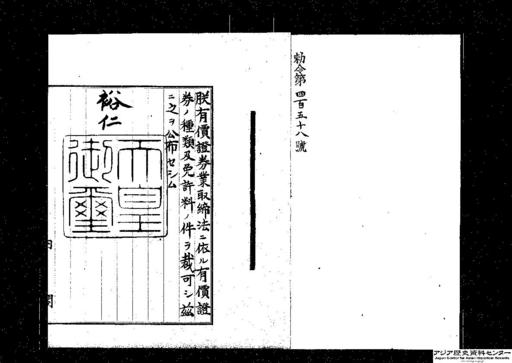 勅令第四百五十八號
朕有價證券業取締法ニ依ル有價證
券ノ種類及免許料ノ件ヲ裁可シ茲
ニ之ヲ公布セシム
裕仁
天皇御璽
内閣
アジア歴史資料センター
Japan Center for Asian Historical Records